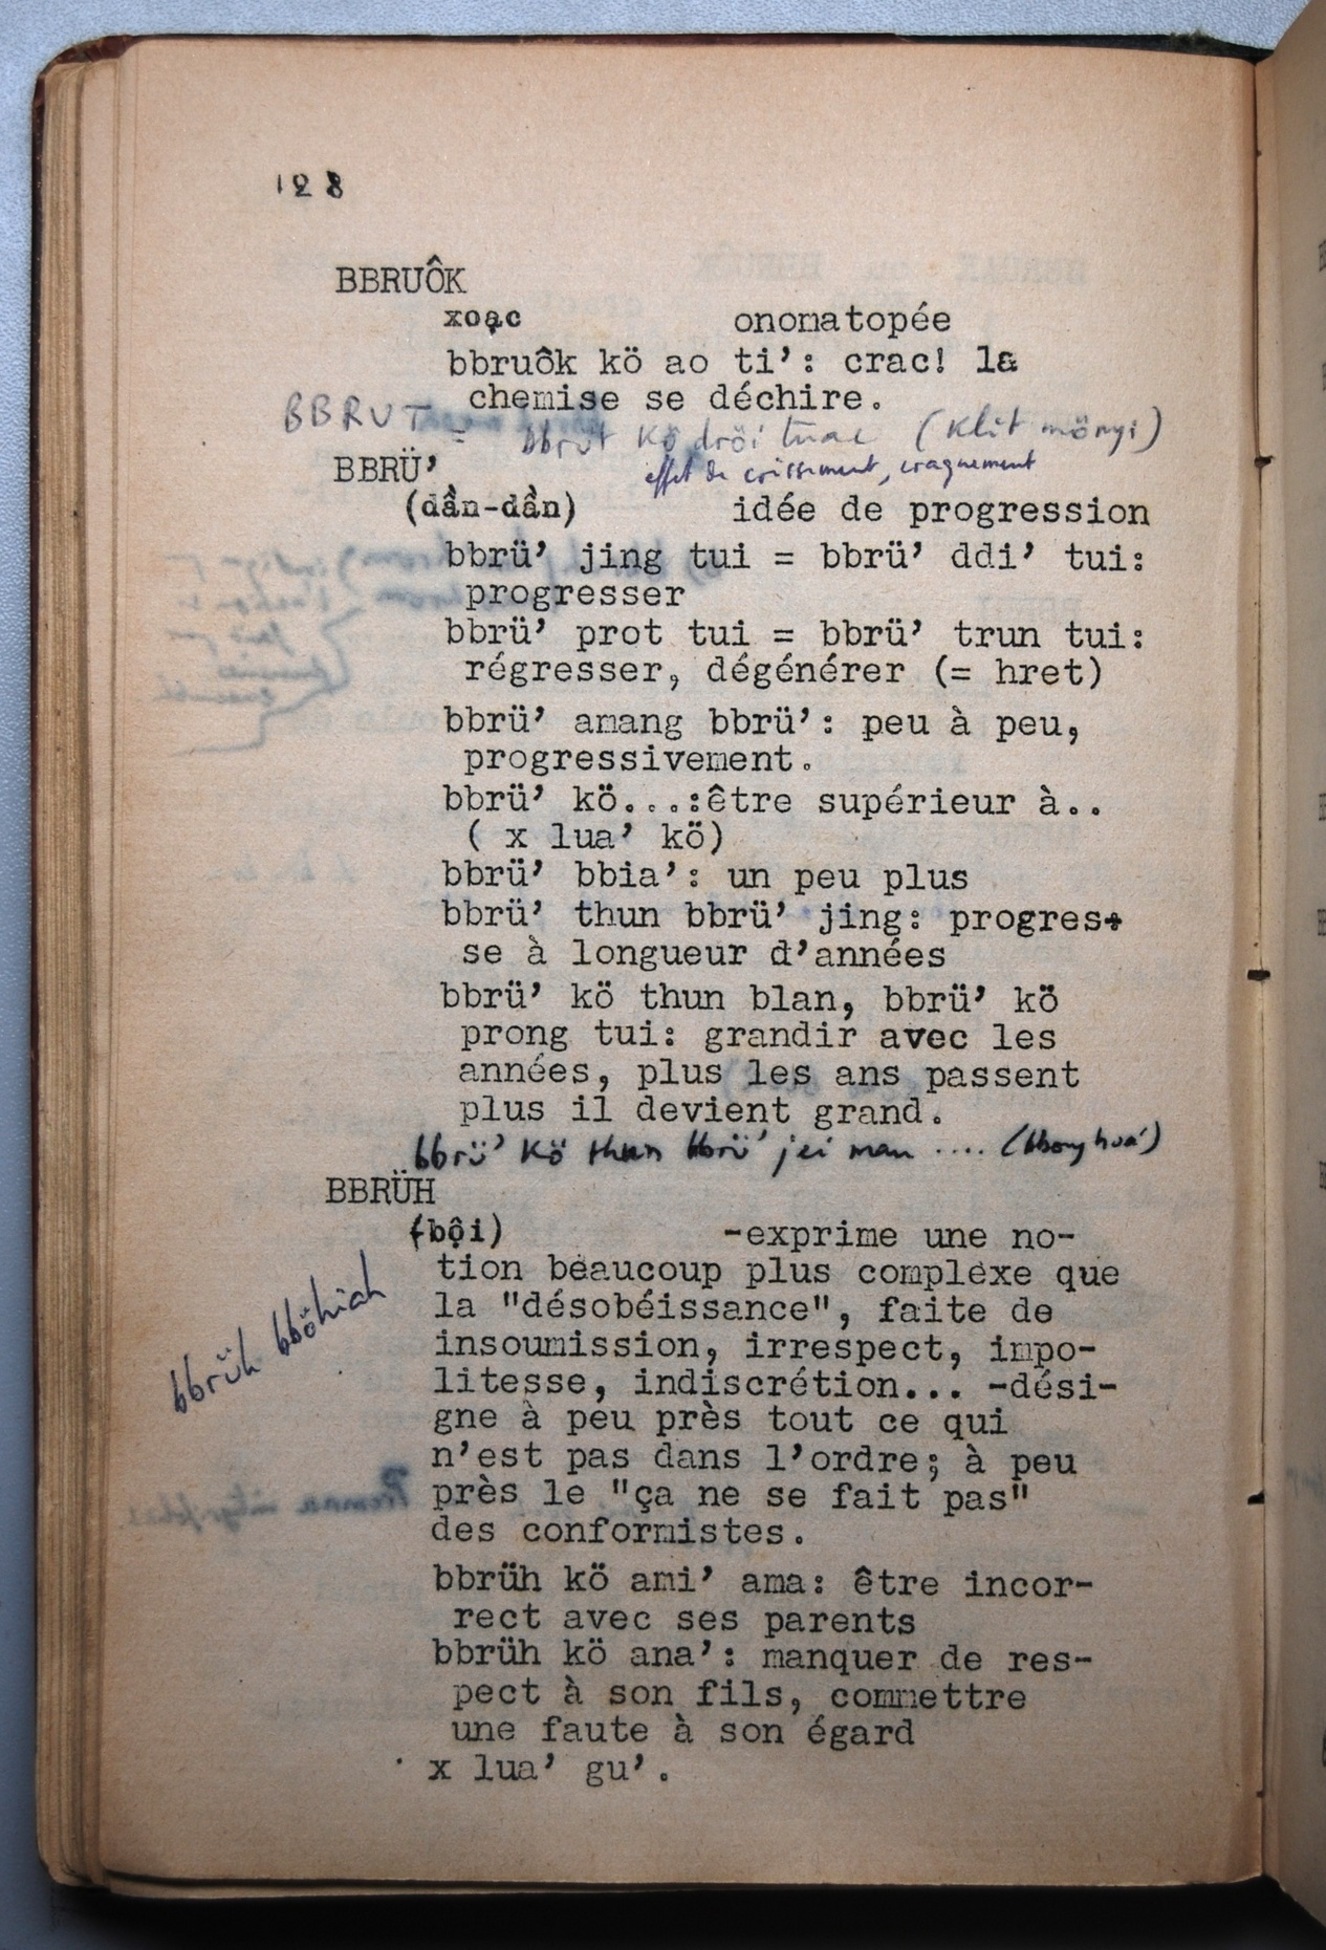 128
BBRUÔK
xoạc onomatopée
bbruôk kö ao ti’: crac! la
chemise se déchire.
BBRUT = bbrut kö dröi tuac (klit mönyi)
effet de crissement, craquement
BBRÜ’
(dần-dần) idée de progression
bbrü’ jing tui = bbrü’ ddi’ tui:
progresser
bbrü’ prot tui = bbrü’ trun tui:
régresser, dégénérer (= hret)
bbrü’ amang bbrü’: peu à peu,
progressivement.
bbrü’ kö...:être supérieur à..
( x lua’ kö)
bbrü’ bbia’: un peu plus
bbrü’ thun bbrü’ jing: progres-
se à longueur d’années
bbrü’ kö thun blan, bbrü’ kö
prong tui: grandir avec les
années, plus les ans passent
plus il devient grand.
bbrü’ kö thun bbrü’ jei man .... (bbong hua’)
BBRÜH
(bội) -exprime une no-
tion beaucoup plus complexe que
la "désobéissance", faite de
insoumission, irrespect, impo-
litesse, indiscrétion... -dési-
gne à peu près tout ce qui
n’est pas dans l’ordre; à peu
près le "ça ne se fait pas"
des conformistes.
bbrüh bböhiah
bbrüh kö ami’ ama: être incor-
rect avec ses parents
bbrüh kö ana’: manquer de res-
pect à son fils, commettre
une faute à son égard
x lua’ gu’.